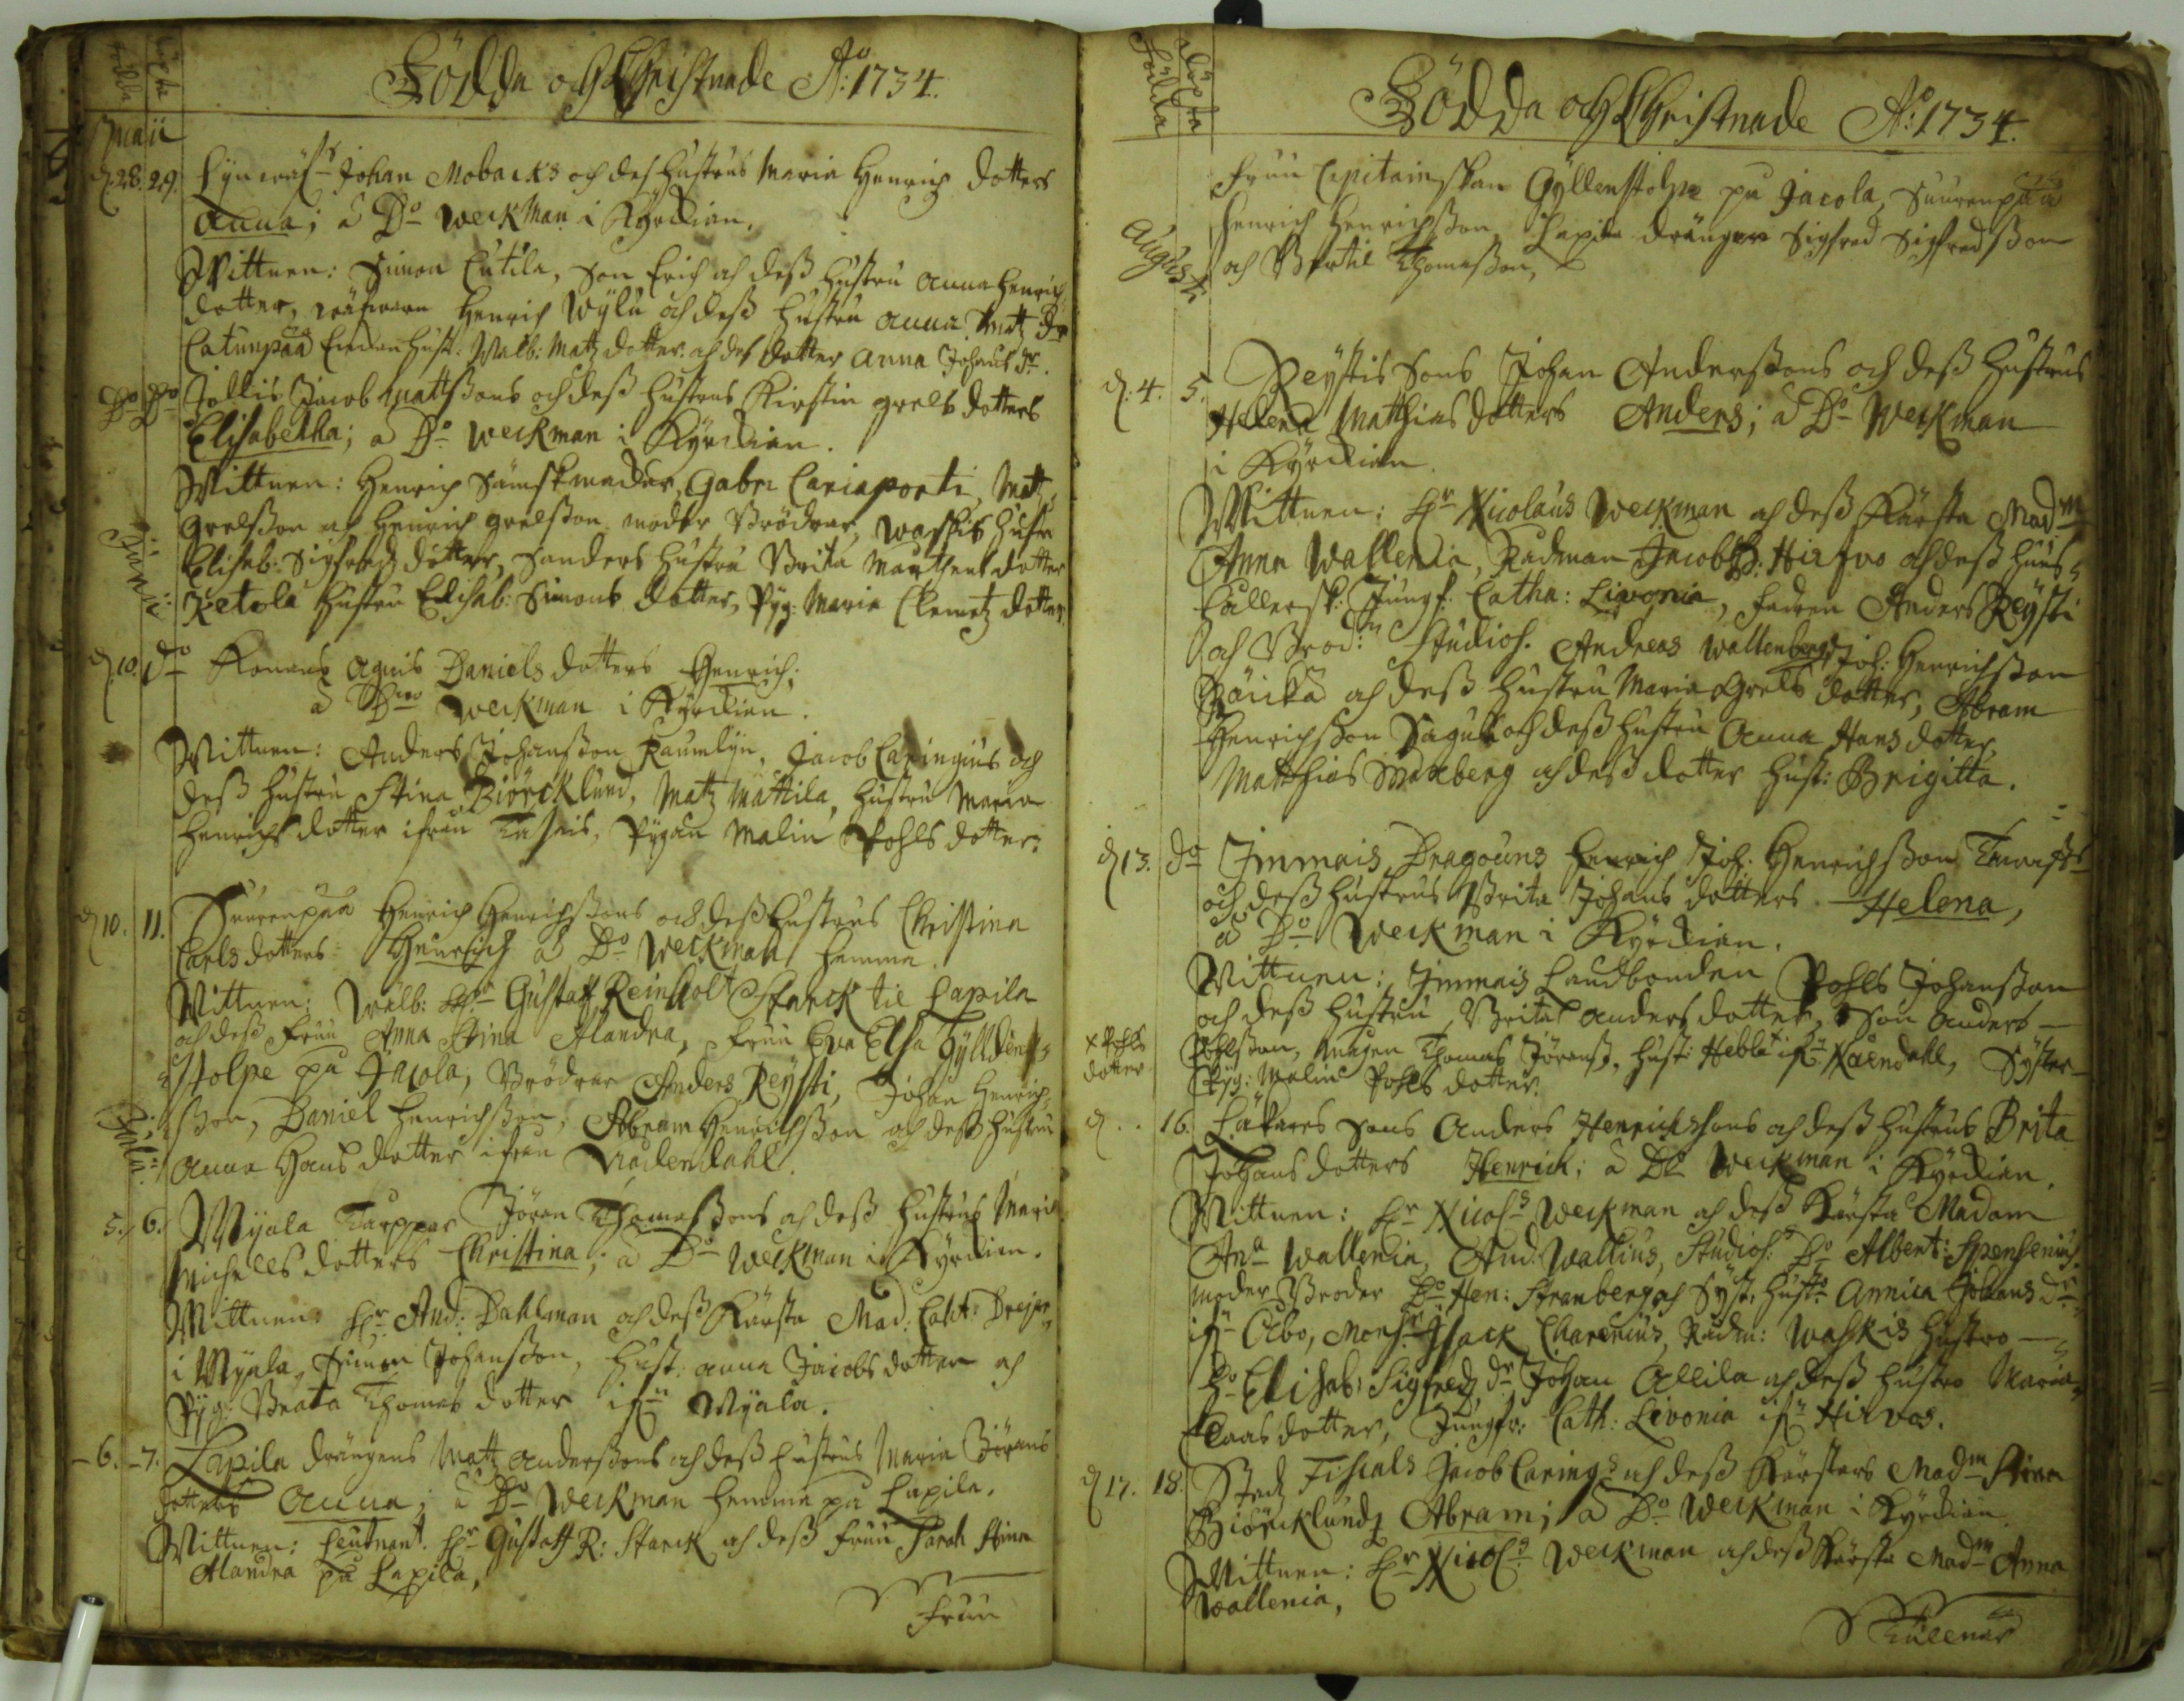 födda döpta
Födda och Christnade A:o 1734.
Maii
d. 28. 29. Johan Mobacks och des hustrus Maria Henrichs dotters
Anna; a D:o Weckman i Kyrckian.
Wittnen: Simon Cutila, Son Erich och dess hustru Anna Henrichs
dotter, Henrich Wylu och dess hustru Anna Matz D:r
Catunpää hust: Walb: Matz dotter och des dotter Anna Johans D:r.
D:o D:o Jollis Jacob Mattssons och dess hustrus Kirstin Grels dotters
Elisabetha; a D:o Weckman i Kyrckian.
Wittnen: Henrich Sämskmaker, Gabri Cariaporti, Matz
Grelsson och Henrich Grelsson moder Brödrar, Waskis hustru
Junii
Elisab: Sigfredz dotter, Sanders hustru Brita Marthens dotter
Ketola hustru Elisab: Simons dotter, Pyg: Maria Clemetz dotter.
d. 10. d:o Konans Agnis Daniels dotters Henrich;
a D:no Weckman i Kyrckian.
Wittnen: Anders Johansson Raumlyn, Jacob Caringius och
dess hustru Stina Biörcklund, Matz Mattila, hustru Maria
Henrichs dotter ifrån Tasais, Pygan Malin Pohls dotter.
d. 10. 11. Suurenpää Henrich Henrichssons och dess hustrus Christina
Carls dotters Henrich a D:o Weckman hemma.
Wittnen: Wälb: H:r Gustaff Reinholt Starck til Lapila
och dess Fruu Anna Stina Alandra, Fruu Eva Elsa Gylldén
stolpe på Jacola, Brödrar Anders Reysti, Johan Henrich
sson, Daniel Henrichsson, Abram Henrichsson och dess hustru
Julii
Anna Hans dotter ifrån Nådendahl.
5. 6. Myala Torppar Jören Thomassons och dess hustrus Maria
Michells dotters Christina; a D:o Weckman i Kyrckian.
Wittnen: H:r And: Dahlman och dess Kärsta Mad: Cath: Dreijer
i Myala, Simon Johansson, hust: Anna Jacobs dotter och
Pyg: Beata Thomas dotter if:n Myala.
6. 7. Lapila drängens Matz Anderssons och dess hustrus Maria Jörans
dotters Anna; a D:o Weckman hemma på Lapila.
Wittnen: Leutnant H:r Gustaff R: Starck och dess Fruu Sarah Stina
Alandra på Lapila,
Fruu
Födda döpta
Födda och Christnade A:o 1734.
Fruu Capitainskan Gyllenstolpe på Jacola, Suurenpää
Henrich Henrichsson Lapila drängar Sigfred Sigfredsson
Augusti
och Bertil Thomasson,
d. 4. 5. Reystis Sons Johan Anderssons och dess hustrus
Helena Matthias dotters Anders; a D:o Weckman
i Kyrckian.
Wittnen: H:r Nicolaus Weckman och dess Kärsta Mad:m
Anna Wallenia, Rådman Jacob Hirfvo och dess hus
hållersk: Jungf. Catha: Livonia, fadren Anders Reysti
och Brod:n Studios. Andreas Wallenberg, Joh: Henrichsson
Räickä och dess hustru Maria Grels dotter, Abram
Henrichsson Sagu och dess hustru Anna Hans dotter,
Matthias Waxberg och dess dotter hust: Brigitta.
d. 13. d:o Immais Dragouns Henrich Joh. Henrichsson
och dess hustrus Brita Johans dotters Helena,
a D:o Weckman i Kyrckian.
Wittnen: Immais Landbonden Pohls Johansson
och dess hustru Brita Anders dotter, Son Anders
x Pohls
dotter
Pohlsson, Mågen Thomas Jöranss, hust: Hebla x if:n Nådendahl, Syster
Pyg: Malin Pohls dotter.
d. .. 16. Läkares Sons Anders Henrichssons och dess hustrus Brita
Johans dotters Henrich; a D:o Weckman i Kyrckian.
Wittnen: H:r Nicol:s Weckman och dess Kärsta Madam
An:a Wallenia, And. Wallius, Studios:s D:o Albert: Spensenius
moder Broder D:o Hen: Stranberg och Syst: hust:o Annica Johans D:r
if:n Åbo, Mons:r Isack Charenius, Rådm: Waskis hustro
H:o Elisab: Sigfredz D:r Johan Allila och dess hustro Maria
Claas dotter, Jungfr: Cath: Livonia if:n Hirvos.
d. 17. 18. Stadz Fiscals Jacob Caring:s och dess Kärstas Mad:m Stina
Biörcklundz Abram; a D:o Weckman i Kyrckian.
Wittnen: H:r Nicol:s Weckman och dess Kärsta Mad:m Anna
Wallenia,
Tullenär